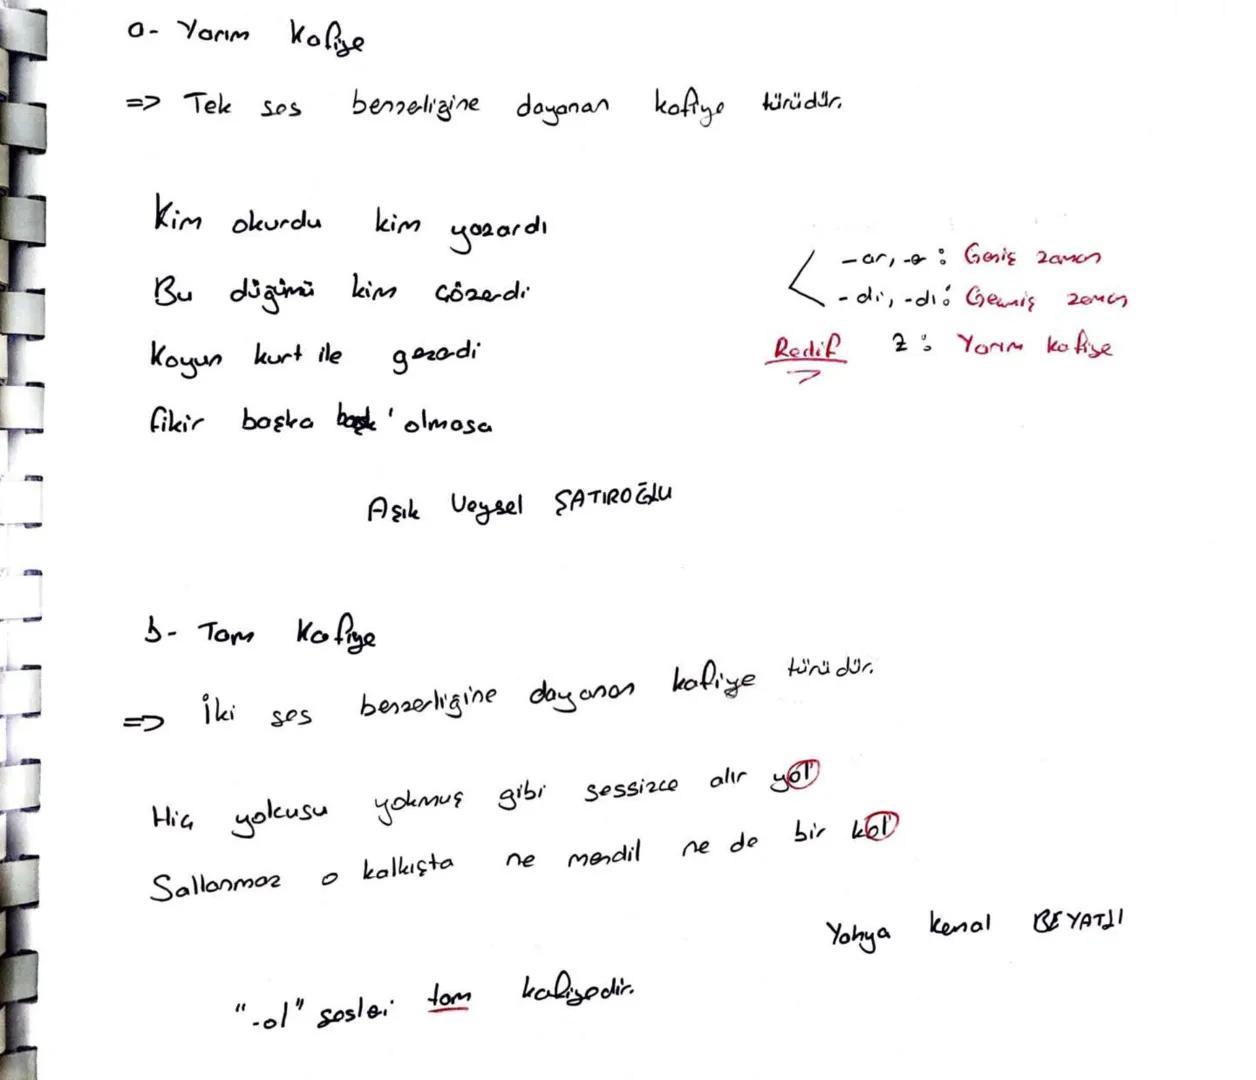 a- Yarım Kafiye
=> Tek ses benzerliğine dayanan kafiye türüdür.
Kim okurdu kim yazardı
Bu düğümü kim çözerdi
Koyun kurt ile gezerdi
fikir başka başk' olmasa
-ar, -e : Geniş zaman
-di, -dı : Geçmiş zaman
Redif z : Yarım kafiye
Aşık Veysel ŞATIROĞLU
b- Tam Kafiye
=> İki ses benzerliğine dayanan kafiye türüdür.
Hiç yolcusu yokmuş gibi sessizce alır yol
Sallanmaz o kalkışta ne mendil ne de bir kol
Yahya Kemal BEYATLI
"-ol" sesleri tam kafiyedir.